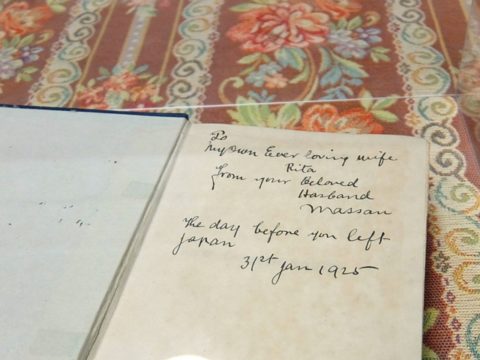 To
My own Ever loving wife
Rita
from your Beloved
Hasband
Massan
The day before you left
Japan
31st Jan 1925